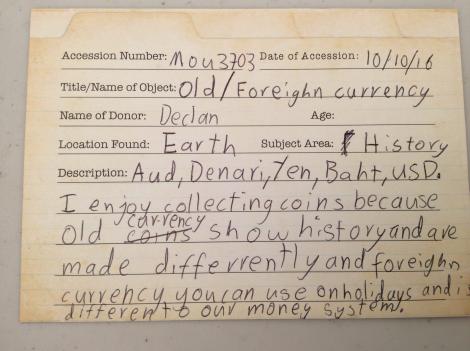 Accession Number: Mou3703 Date of Accession: 10/10/16
Title/Name of Object: Old/Foreighn currency
Name of Donor: Declan Age:
Location Found: Earth Subject Area: History
Description: Aud, Denari, Yen, Baht, USD.
I enjoy collecting coins because
currency
old coins show history and are
made differrently and foreighn
currency you can use on holidays and is
different to our money system.